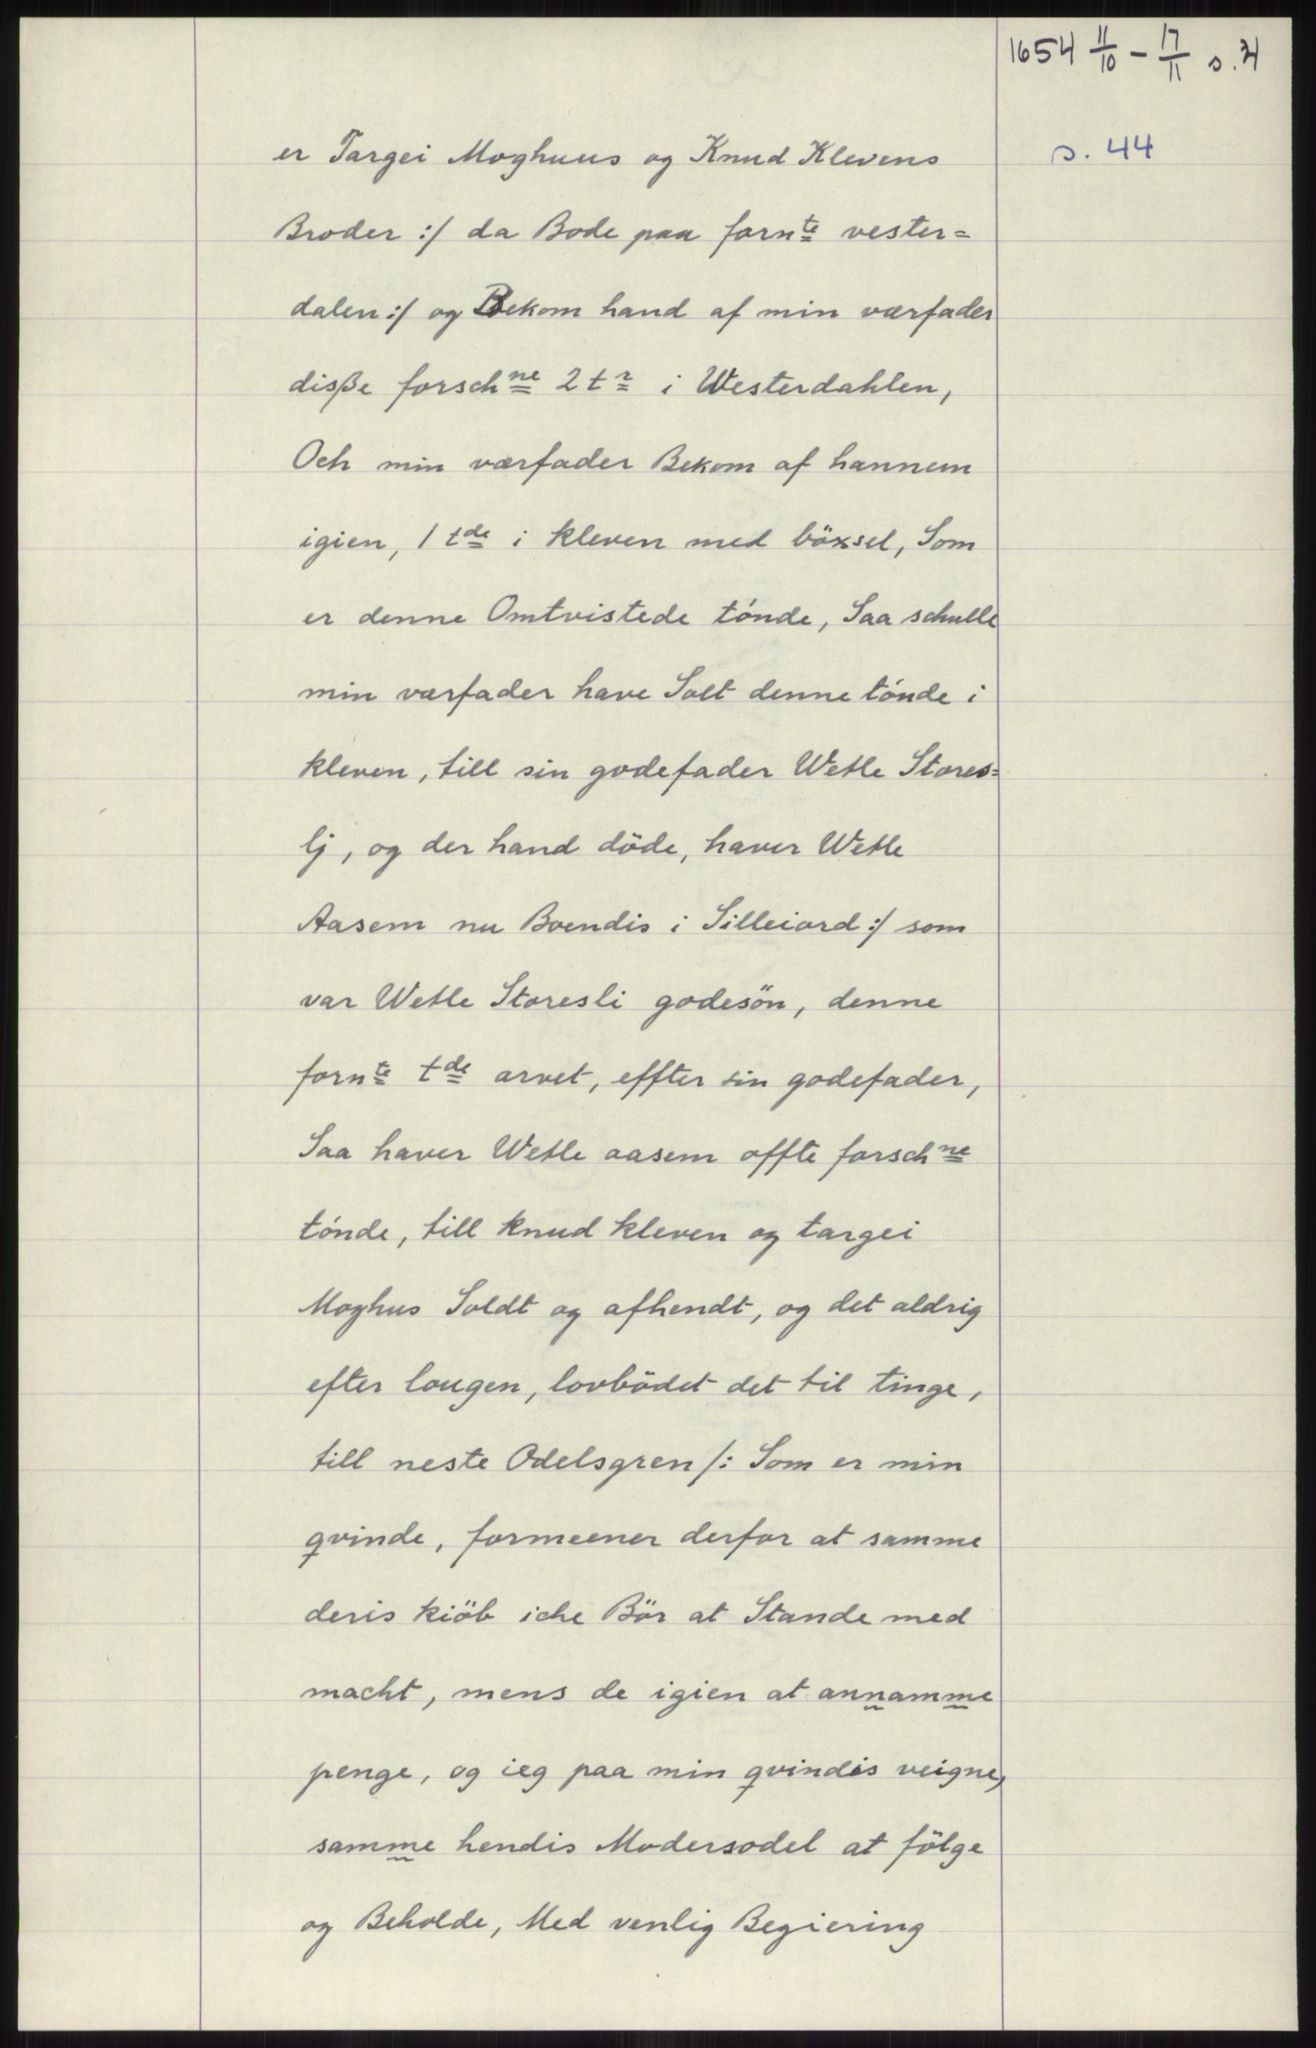 1654 11/10 - 17/11 s. 21
s. 44
er Targei Moghuus og Knud Klevens
Broder :/ da Bode paa fornte vester=
dalen :/ og Bekom hand af min værfader
disße forschne 2 tr i Westerdahlen,
Och min værfader Bekom af hannem
igien, 1 tde i kleven med böxsel, Som
er denne Omtvistede tónde, Saa schulle
min værfader have Solt denne tónde i
kleven, till sin godefader Wetle Stores=
lj, og der hand döde, haver Wetle
Aasem nu Boendis i Silleiord :/ som
var Wetle Storesli godesön, denne
fornte tde arvet, effter sin godefader,
Saa haver Wetle aasem offte forschne
tónde, till knud kleven og targei
Moghus Soldt og afhendt, og det aldrig
efter lougen, lovbödet det til tinge,
till neste Odelsgren /: Som er min
qvinde, formeener derfor at samme
deris kiöb iche Bör at Stande med
macht, mens de igien at annamme
penge, og ieg paa min qvindis veigne,
samme hendis Modersodel at fölge
og Beholde, Med venlig Begiering